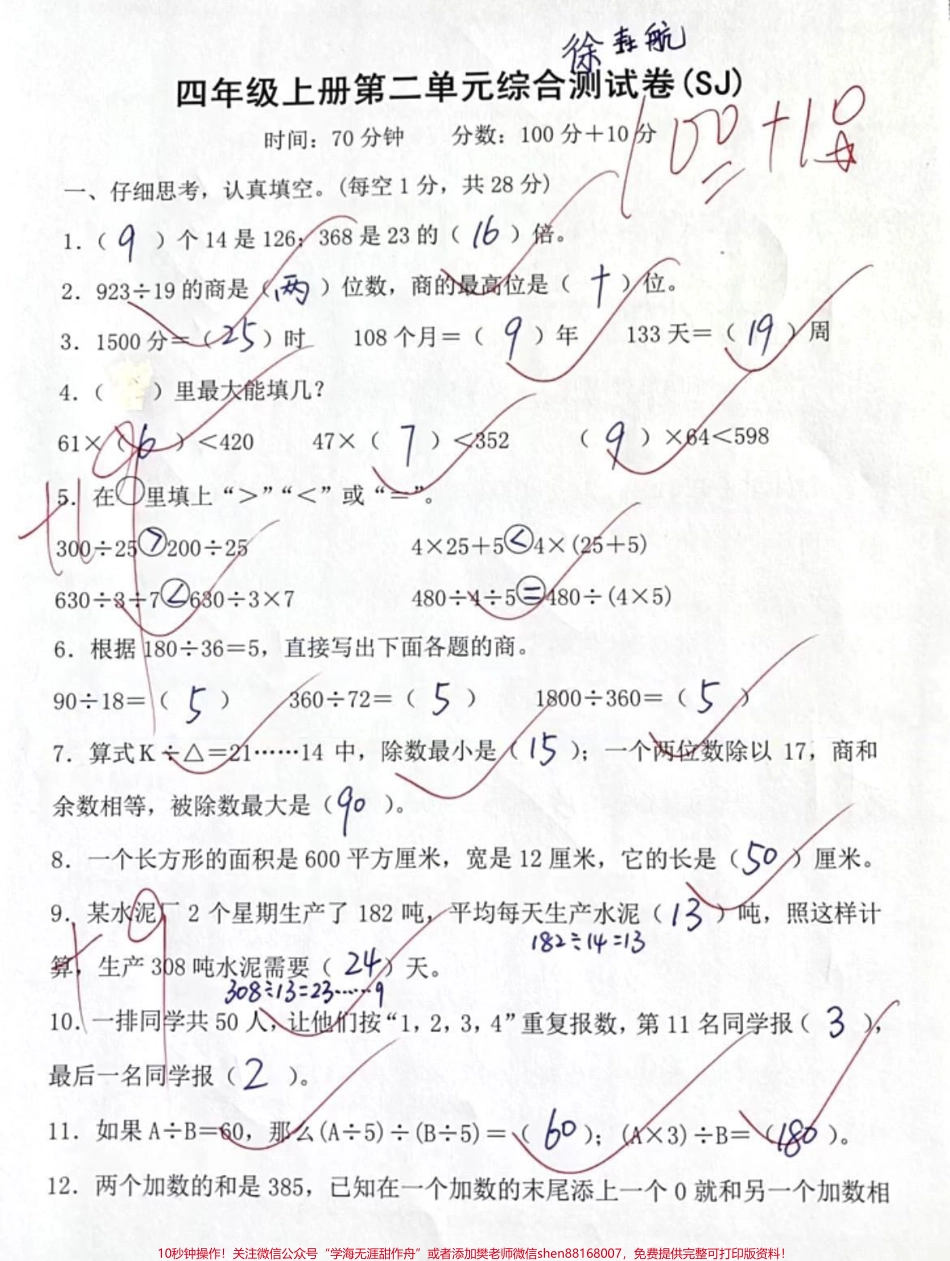 徐垚航
四年级上册第二单元综合测试卷(SJ)
时间：70分钟 分数：100分＋10分
100+10
一、仔细思考，认真填空。(每空1分，共28分)
1.（ 9 ）个14是126；368是23的（ 16 ）倍。
2. 923÷19的商是（两）位数，商的最高位是（ 十 ）位。
3. 1500分＝（25）时 108个月＝（ 9 ）年 133天＝（ 19 ）周
4.（ ）里最大能填几？
61×（ 6 ）＜420 47×（ 7 ）＜352 （ 9 ）×64＜598
5. 在○里填上“＞”“＜”或“＝”。
300÷25＞200÷25 4×25＋5＜4×(25＋5)
630÷3÷7＜630÷3×7 480÷4÷5＝480÷(4×5)
6. 根据180÷36＝5，直接写出下面各题的商。
90÷18＝（ 5 ） 360÷72＝（ 5 ） 1800÷360＝（ 5 ）
7. 算式K÷△＝21……14中，除数最小是（ 15 ）；一个两位数除以17，商和
余数相等，被除数最大是（90）。
8. 一个长方形的面积是600平方厘米，宽是12厘米，它的长是（ 50 ）厘米。
9. 某水泥厂2个星期生产了182吨，平均每天生产水泥（ 13 ）吨，照这样计
182÷14=13
算，生产308吨水泥需要（ 24 ）天。
308÷13=23……9
10. 一排同学共50人，让他们按“1，2，3，4”重复报数，第11名同学报（ 3 ），
最后一名同学报（ 2 ）。
11. 如果A÷B＝60，那么(A÷5)÷(B÷5)＝（ 60 ）；(A×3)÷B＝（180）。
12. 两个加数的和是385，已知在一个加数的末尾添上一个0就和另一个加数相
10秒钟操作！关注微信公众号“学海无涯甜作舟”或者添加樊老师微信shen88168007，免费提供完整可打印版资料！